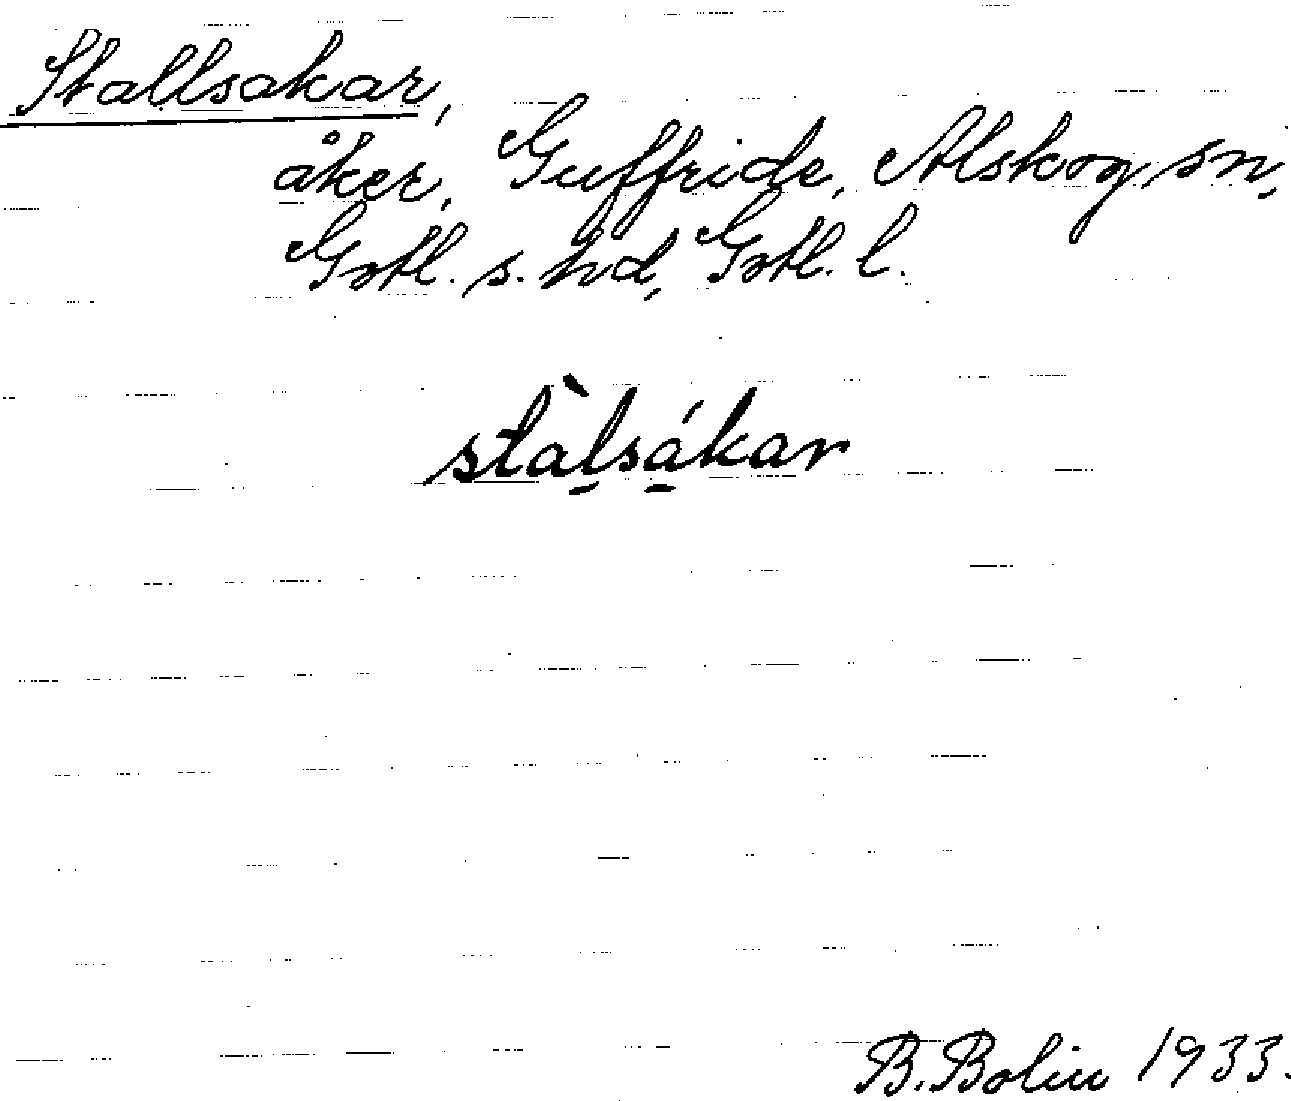 Stallsakar,
åker, Guffride, Alskog sn,
Gotl. s. hd, Gotl. l.
stàl̠sá̠kar
B. Bolin 1933.